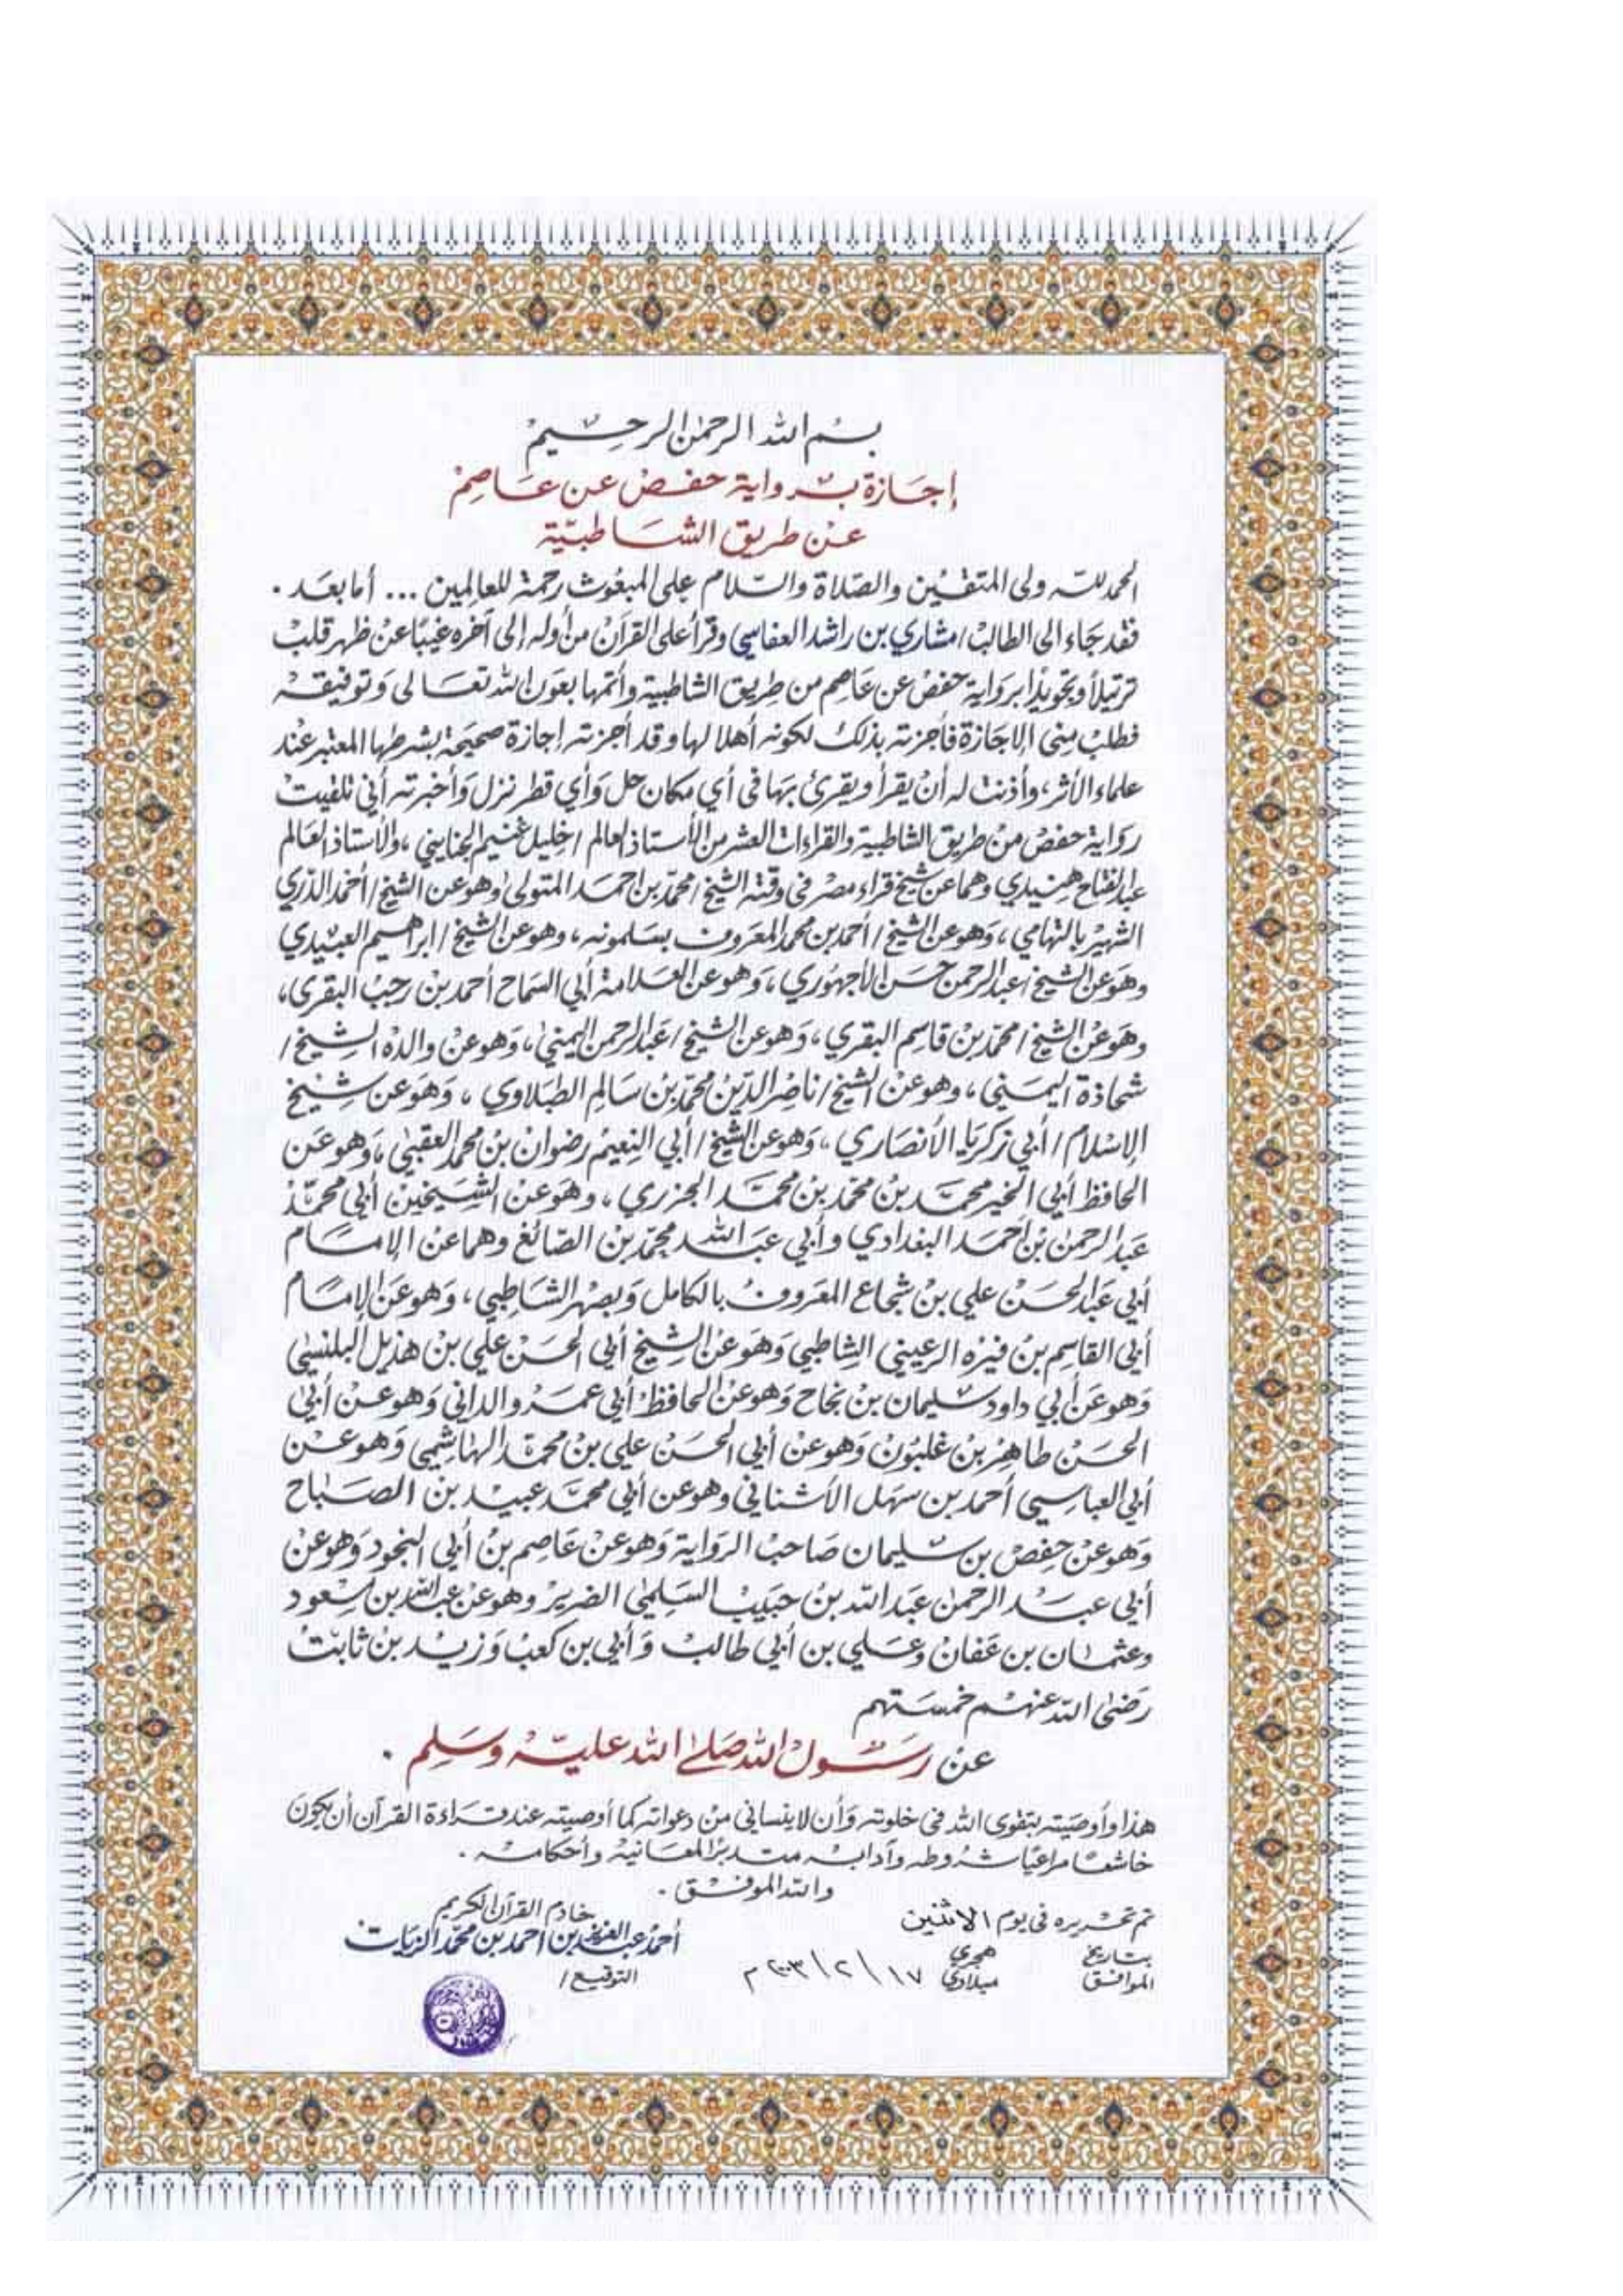 بسم الله الرحمن الرحيم
إجازة برواية حفص عن عاصم
عن طريق الشاطبية
الحمد لله ولى المتقين والصلاة والسلام على المبعوث رحمة للعالمين ... أما بعد .
فقد جاء الى الطالب / مشاري بن راشد العفاسي وقرأ على القرآن من أوله إلى آخره غيبا عن ظهر قلب
ترتيلا وتجويدا برواية حفص عن عاصم من طريق الشاطبية وأتمها بعون الله تعالى وتوفيقه
فطلب مني الإجازة فأجزته بذلك لكونه أهلا لها وقد أجزته إجازة صحيحة بشرطها المعتبر عند
علماء الأثر، وأذنت له أن يقرأ ويقرئ بها في أي مكان حل وأي قطر نزل وأخبرته أني تلقيت
رواية حفص من طريق الشاطبية والقراءات العشر من الأستاذ العالم / خليل غنيم الجنايني ، والأستاذ العالم
عبد الفتاح هنيدي وهما عن شيخ قراء مصر في وقته الشيخ / محمد بن احمد المتولى وهو عن الشيخ / أحمد الدري
الشهير بالتهامي ، وهو عن الشيخ / أحمد بن محمد المعروف بسلمونه ، وهو عن الشيخ / ابراهيم العبيدي
وهو عن الشيخ / عبد الرحمن حسن الأجهوري ، وهو عن العلامة أبي السماح أحمد بن رجب البقري ،
وهو عن الشيخ / محمد بن قاسم البقري ، وهو عن الشيخ / عبد الرحمن اليمني ، وهو عن والده الشيخ /
شحاذة اليمني ، وهو عن الشيخ / ناصر الدين محمد بن سالم الطبلاوي ، وهو عن شيخ
الإسلام / أبي زكريا الأنصاري ، وهو عن الشيخ / أبي النعيم رضوان بن محمد العقبي ، وهو عن
الحافظ أبي الخير محمد بن محمد بن محمد الجزري ، وهو عن الشيخين أبي محمد
عبد الرحمن بن أحمد البغدادي وأبي عبد الله محمد بن الصائغ وهما عن الإمام
أبي عبد الحسن علي بن شجاع المعروف بالكامل وبصهر الشاطبي ، وهو عن الإمام
أبي القاسم بن فيزه الرعيني الشاطبي وهو عن الشيخ أبي الحسن علي بن هذيل البلنسي
وهو عن أبي داود سليمان بن نجاح وهو عن الحافظ أبي عمرو الداني وهو عن أبي
الحسن طاهر بن غلبون وهو عن أبي الحسن علي بن محمد الهاشمي وهو عن
أبي العباسي أحمد بن سهل الأشناني وهو عن أبي محمد عبيد بن الصباح
وهو عن حفص بن سليمان صاحب الرواية وهو عن عاصم بن أبي النجود وهو عن
أبي عبد الرحمن عبد الله بن حبيب السلمي الضرير وهو عن عبد الله بن مسعود
وعثمان بن عفان وعلي بن أبي طالب وأبي بن كعب وزيد بن ثابت
رضي الله عنهم خمستهم
عن رسول الله صلى الله عليه وسلم .
هذا وأوصيته بتقوى الله في خلوته وأن لا ينساني من دعواته كما أوصيته عند قراءة القرآن أن يكون
خاشعا مراعيا شروطه وآدابه متدبرا لمعانيه وأحكامه .
والله الموفق .
تم تحريره في يوم الاثنين
بتاريخ هجري
الموافق ميلادي ١٧ / ٢ / ٢٠٠٣ م
خادم القرآن الكريم
أحمد عبد العزيز بن أحمد بن محمد الزيات
التوقيع /